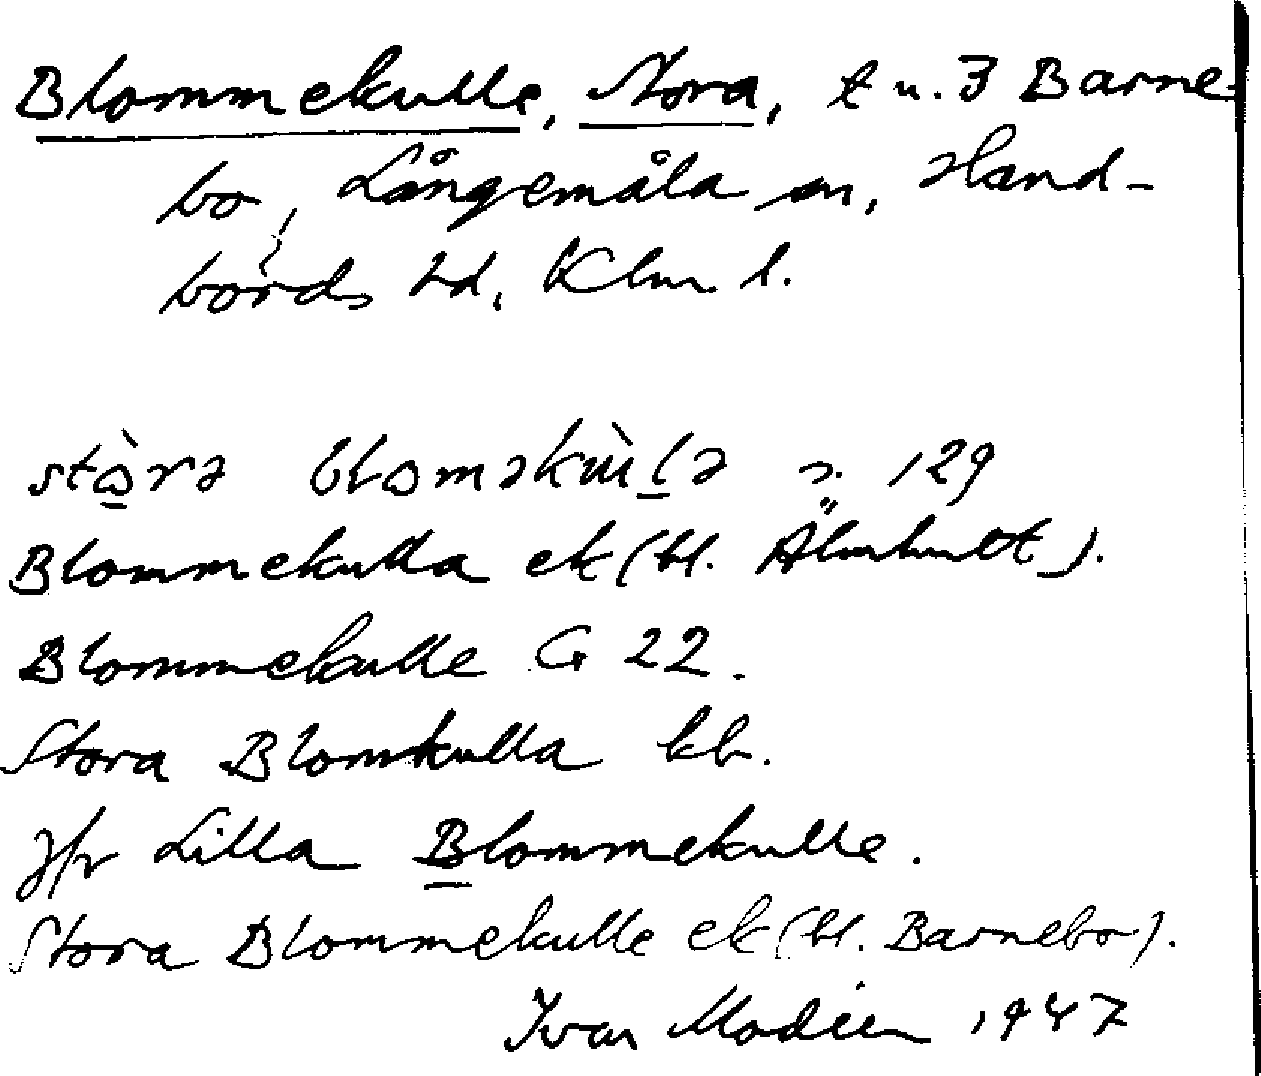 Blommekulle, Stora, t u. 3 Barne-
bo, Långemåla sn, Hand-
börds hd, Klm. l.
Blommekulla ek (bl. Älmhult).
Blommekulle G 22.
Stora Blomkulla kb.
Jfr Lilla Blommekulle.
Stora Blommekulle ek (bl. Barnebo).
Ivar Modéer 1947